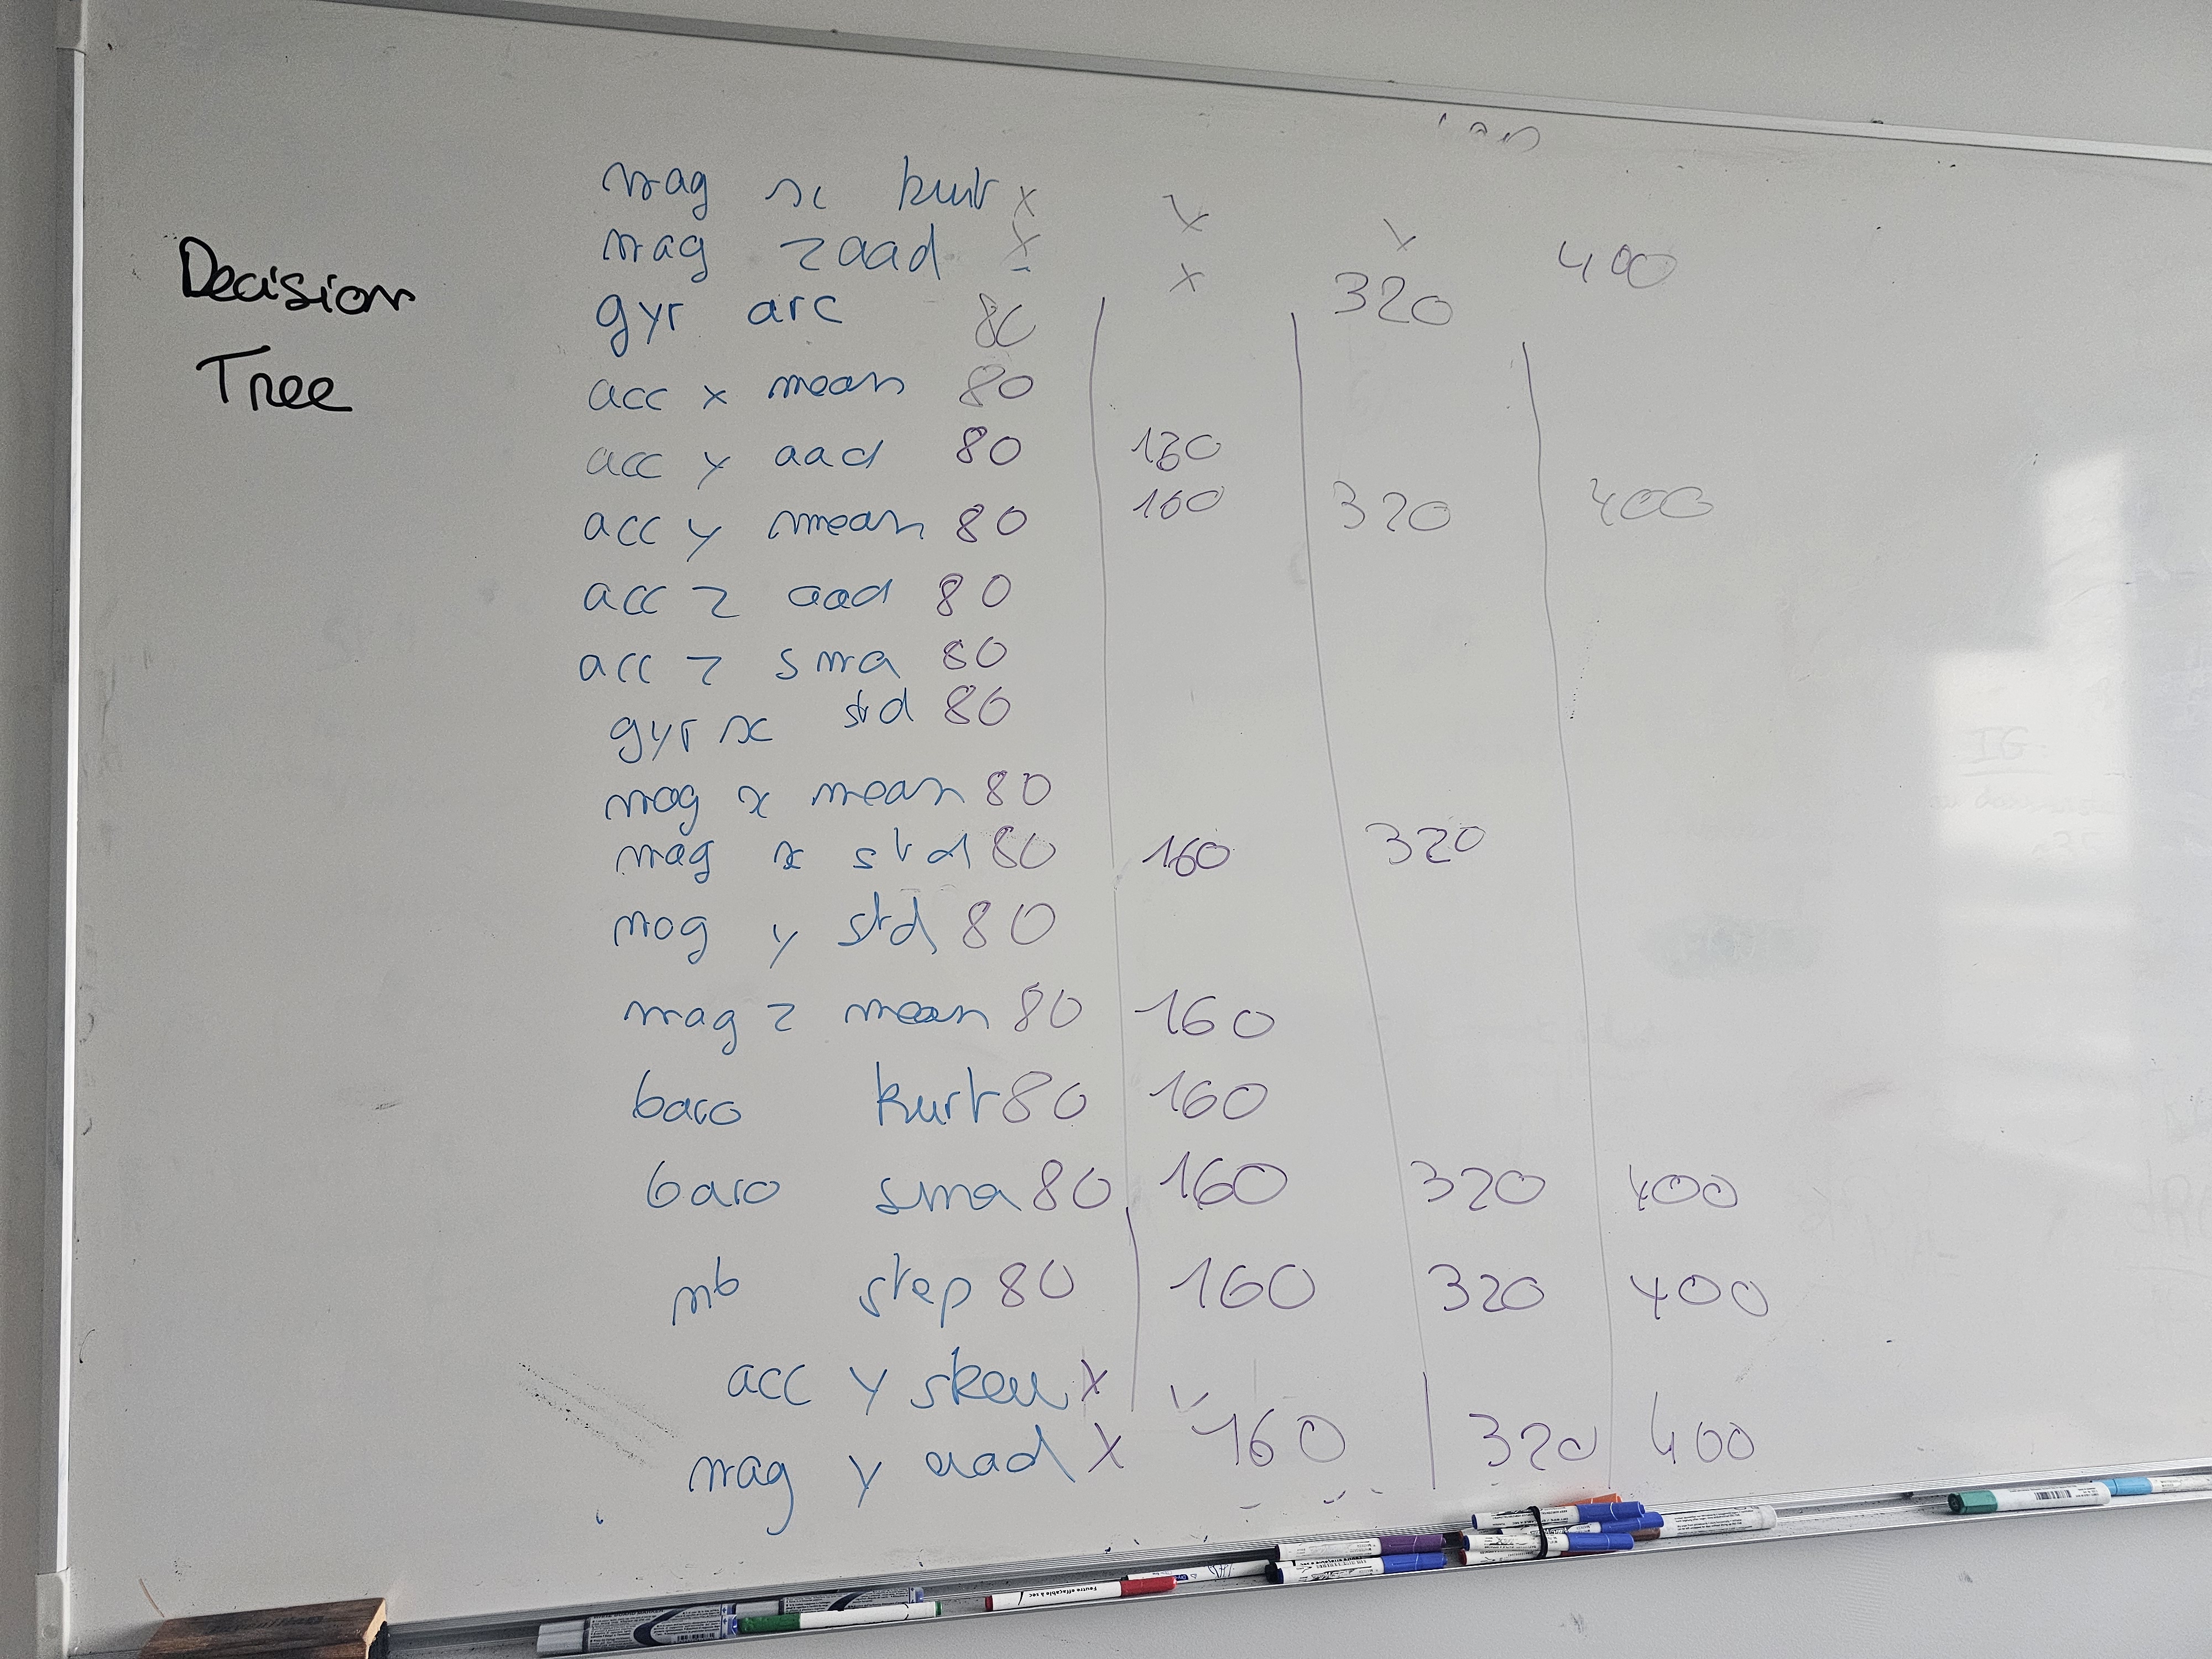 Decision
Tree
mag x kurt x x x
mag z aad x x 320 400
gyr arc 80
acc x mean 80
acc y aad 80 160
acc y mean 80 160 320 400
acc z aad 80
acc z sma 80
gyr x std 80
mag x mean 80
mag x std 80 160 320
mag y std 80
mag z mean 80 160
baro kurt 80 160
baro sma 80 160 320 400
nb step 80 160 320 400
acc y skew x
mag y aad x 160 320 400